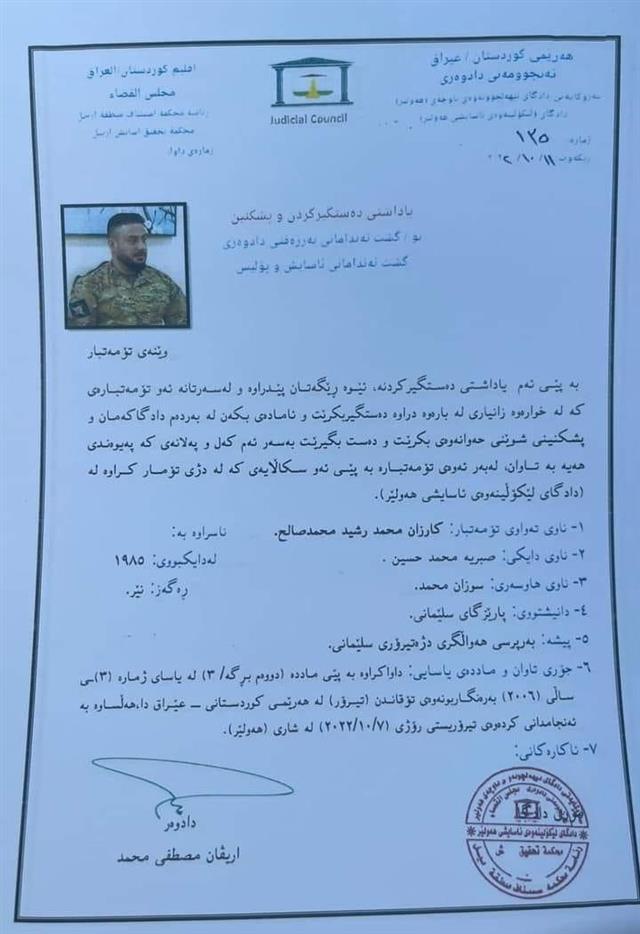 هەرێمی کوردستان / عیراق
ئەنجوومەنی دادوەری
دادگای لێکۆڵینەوەی ئاسایشی هەولێر
ژمارە: ١٢٥
ڕێکەوت: ١١/ ١٠/
Judicial Council
اقلیم کوردستان/العراق
مجلس القضاء
رئاسة محكمة استئناف منطقة اربيل
محكمة تحقيق اسايش اربيل
ژمارەی داوا:
یاداشتی دەستگیرکردن و پشکنین
بۆ / گشت ئەندامانی بەرزەفتی دادوەری
گشت ئەندامانی ئاسایش و پۆلیس
وێنەی تۆمەتبار
بە پێی ئەم یاداشتی دەستگیرکردنە، ئێوە ڕێگەتان پێدراوە و لەسەرتانە ئەو تۆمەتبارەی
کە لە خوارەوە زانیاری لە بارەوە دراوە دەستگیربکرێت و ئامادەی بکەن لە بەردەم دادگاکەمان و
پشکنینی شوێنی حەوانەوەی بکرێت و دەست بگیرێت بەسەر ئەم کەل و پەلانەی کە پەیوەندی
هەیە بە تاوان، لەبەر ئەوەی تۆمەتبارە بە پێی ئەو سکاڵایەی کە لە دژی تۆمار کراوە لە
(دادگای لێکۆڵینەوەی ئاسایشی هەولێر).
١- ناوی تەواوی تۆمەتبار: کارزان محمد رشید محمدصالح. ناسراوە بە:
٢- ناوی دایکی: صبریە محمد حسین . لەدایکبووی: ١٩٨٥
٣- ناوی هاوسەری: سوزان محمد. ڕەگەز: نێر.
٤- دانیشتووی: پارێزگای سلێمانی.
٥- پیشە: بەرپرسی هەواڵگری دژەتیرۆری سلێمانی.
٦- جۆری تاوان و ماددەی یاسایی: داواکراوە بە پێی ماددە (دووەم برگە/ ٣) لە یاسای ژمارە (٣)ـی
ساڵی (٢٠٠٦) بەرەنگاربونەوەی تۆقاندن (تیرۆر) لە هەرێمی کوردستانی – عێراق دا،هەڵساوە بە
ئەنجامدانی کردەوەی تیرۆریستی رۆژی (٢٠٢٢/١٠/٧) لە شاری (هەولێر).
٧- ئاکارەکانی:
دادوەر
اریڤان مصطفی محمد
دادگای لێکۆڵینەوەی ئاسایشی هەولێر
محكمة تحقيق